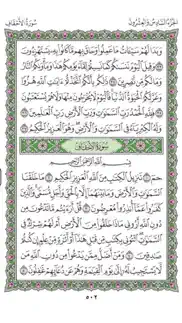 الجزء السادس والعشرون سورة الأحقاف
وَبَدَا لَهُمْ سَيِّئَاتُ مَا عَمِلُوا وَحَاقَ بِهِم مَّا كَانُوا بِهِ يَسْتَهْزِءُونَ
۝٣٣ وَقِيلَ الْيَوْمَ نَنسَاكُمْ كَمَا نَسِيتُمْ لِقَاءَ يَوْمِكُمْ هَٰذَا وَمَأْوَاكُمُ النَّارُ
وَمَا لَكُم مِّن نَّاصِرِينَ ۝٣٤ ذَٰلِكُم بِأَنَّكُمُ اتَّخَذْتُمْ آيَاتِ اللَّهِ هُزُوًا
وَغَرَّتْكُمُ الْحَيَاةُ الدُّنْيَا فَالْيَوْمَ لَا يُخْرَجُونَ مِنْهَا وَلَا هُمْ يُسْتَعْتَبُونَ
۝٣٥ فَلِلَّهِ الْحَمْدُ رَبِّ السَّمَاوَاتِ وَرَبِّ الْأَرْضِ رَبِّ الْعَالَمِينَ ۝٣٦
وَلَهُ الْكِبْرِيَاءُ فِي السَّمَاوَاتِ وَالْأَرْضِ وَهُوَ الْعَزِيزُ الْحَكِيمُ ۝٣٧
سورة الأحقاف
بِسْمِ اللَّهِ الرَّحْمَٰنِ الرَّحِيمِ
حم ۝١ تَنزِيلُ الْكِتَابِ مِنَ اللَّهِ الْعَزِيزِ الْحَكِيمِ ۝٢ مَا خَلَقْنَا
السَّمَاوَاتِ وَالْأَرْضَ وَمَا بَيْنَهُمَا إِلَّا بِالْحَقِّ وَأَجَلٍ مُّسَمًّى وَالَّذِينَ
كَفَرُوا عَمَّا أُنذِرُوا مُعْرِضُونَ ۝٣ قُلْ أَرَأَيْتُم مَّا تَدْعُونَ مِن
دُونِ اللَّهِ أَرُونِي مَاذَا خَلَقُوا مِنَ الْأَرْضِ أَمْ لَهُمْ شِرْكٌ فِي
السَّمَاوَاتِ ائْتُونِي بِكِتَابٍ مِّن قَبْلِ هَٰذَا أَوْ أَثَارَةٍ مِّنْ عِلْمٍ إِن كُنتُمْ
صَادِقِينَ ۝٤ وَمَنْ أَضَلُّ مِمَّن يَدْعُو مِن دُونِ اللَّهِ مَن
لَّا يَسْتَجِيبُ لَهُ إِلَىٰ يَوْمِ الْقِيَامَةِ وَهُمْ عَن دُعَائِهِمْ غَافِلُونَ ۝٥
٥٠٢